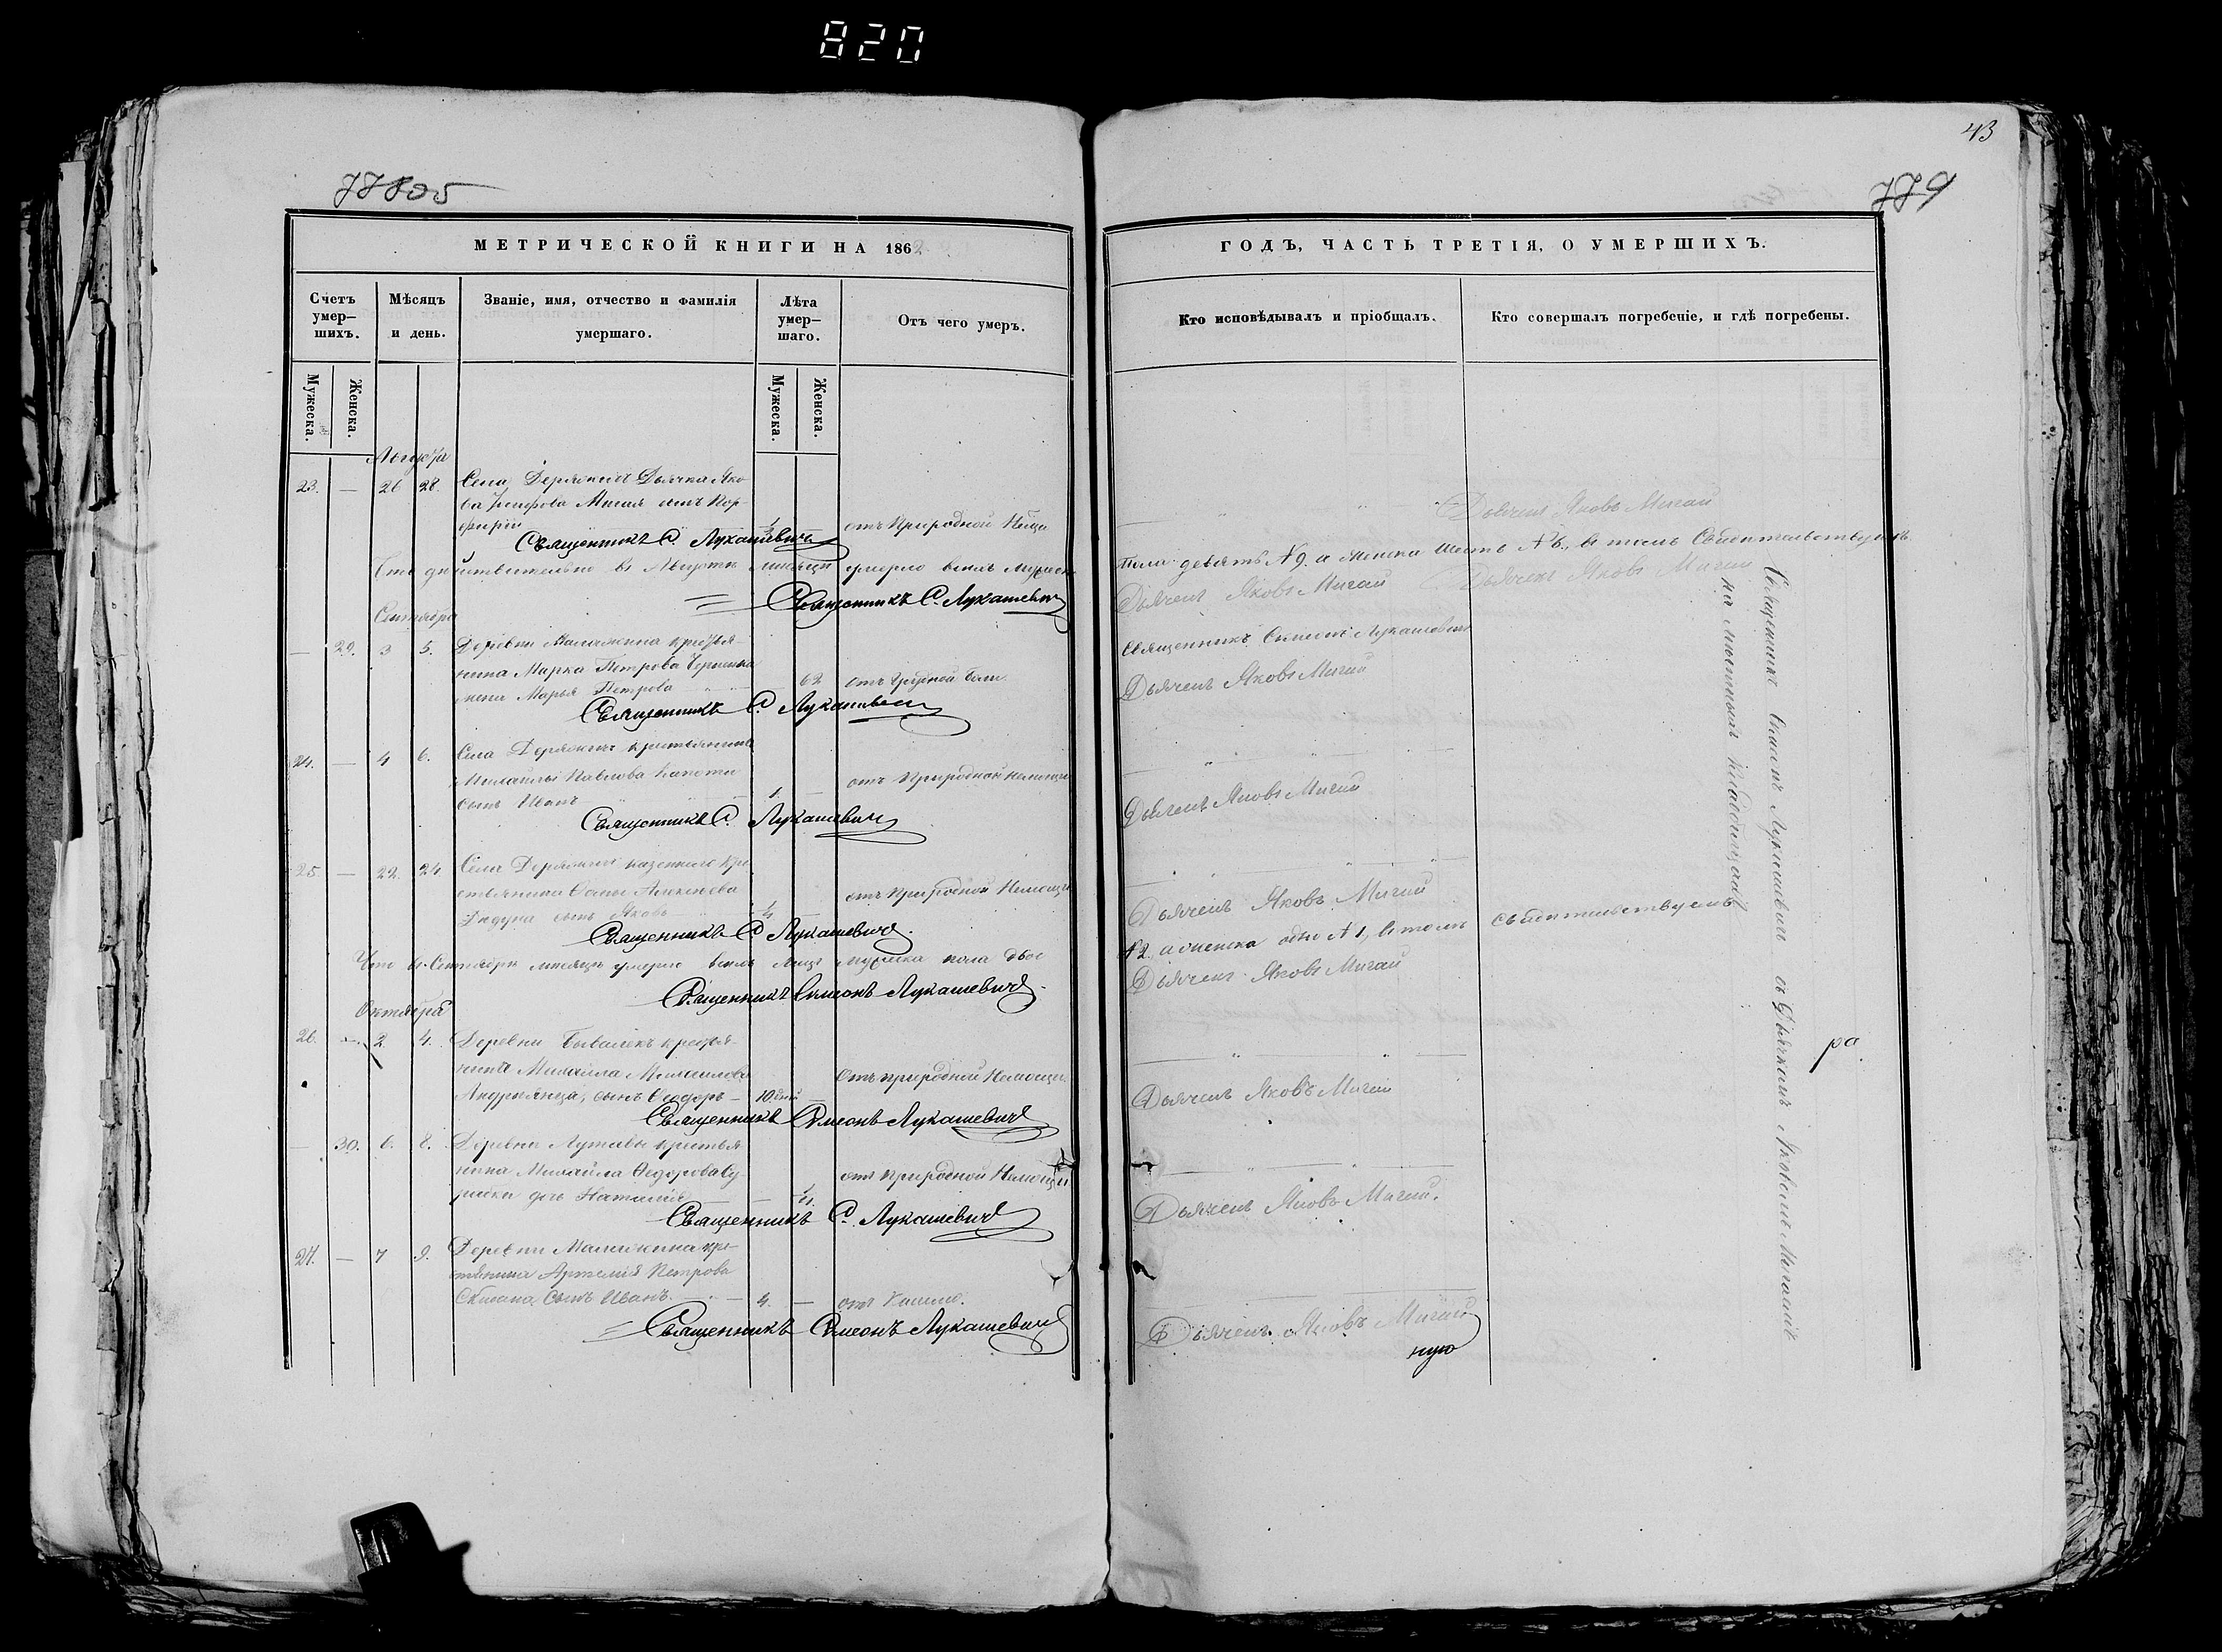 820
43
77805
779
МЕТРИЧЕСКОЙ КНИГИ НА 1862
ГОДЪ, ЧАСТЬ ТРЕТІЯ, О УМЕРШИХЪ.
Счетъ умер—шихъ.
Мѣсяцъ и день.
Званіе, имя, отчество и фамилія умершаго.
Лѣта умер—шаго.
Отъ чего умеръ.
Кто исповѣдывалъ и пріобщалъ.
Кто совершалъ погребеніе, и гдѣ погребены.
Мужеска.
Женска.
Мужеска.
Женска.
Августа
23. — 26 28. Села Деражичъ Дьячка Яко-
ва Мигая сынъ Пор-
фирій отъ Природной
Священникъ С. Лукашевичъ
Дьячекъ Яковъ Мигай
Что дѣйствительно въ Августѣ мѣсяцѣ умерло всего мужеск
пола девять №9. а женска шесть №6., въ томъ Свидѣтельствуемъ
Священникъ С. Лукашевичъ
Дьячекъ Яковъ Мигай
Дьячекъ Яковъ Мигай
Сентября
— 29. 3 5. Деревни Малажина крестья-
нина Марка Петрова
жена Марья Петрова 62 отъ Грудной боли
Священникъ С. Лукашевичъ
Священникъ Симеонъ Лукашевичъ
Дьячекъ Яковъ Мигай
24. — 4 6. Села Деражичъ крестьянина
Михайлы Павлова
сынъ Иванъ 1. — отъ Природной немощи
Священникъ С. Лукашевичъ
Дьячекъ Яковъ Мигай
25. — 22. 24. Села Деражичъ казеннаго кре
стьянина Алексѣева
сынъ Яковъ ¼ отъ Природной Немощи
Священникъ С. Лукашевичъ.
Дьячекъ Яковъ Мигай
Что въ Сентябрѣ мѣсяцѣ умерло всего мужеска пола двое
№2, а женска одно №1, въ томъ свидѣтельствуемъ
Священникъ Симеонъ Лукашевичъ.
Дьячекъ Яковъ Мигай
Октября
26. — 2. 4. Деревни Бывалекъ крестья-
нина Михайла Михайлова
сынъ Ѳеодоръ — 10 дней Отъ природной Немощи.
Священникъ Симеонъ Лукашевичъ
Дьячекъ Яковъ Мигай
— 30. 6. 8. Деревни Лутавы крестья
нина Михайла Ѳедорова Су-
дочь Наталія ¼ отъ природной Немощи.
Священникъ С. Лукашевичъ
Дьячекъ Яковъ Мигай.
27. — 7 9. Деревни Малажина кре-
стьянина Артемія Петрова
сынъ Иванъ. 4. — отъ Кашлю.
Священникъ Симеонъ Лукашевичъ
Дьячекъ Яковъ Мигай
ную
Священникъ Симеонъ Лукашевичъ съ Дьячкомъ Яковомъ Мигаемъ
на мѣстномъ кладбищѣ
ра